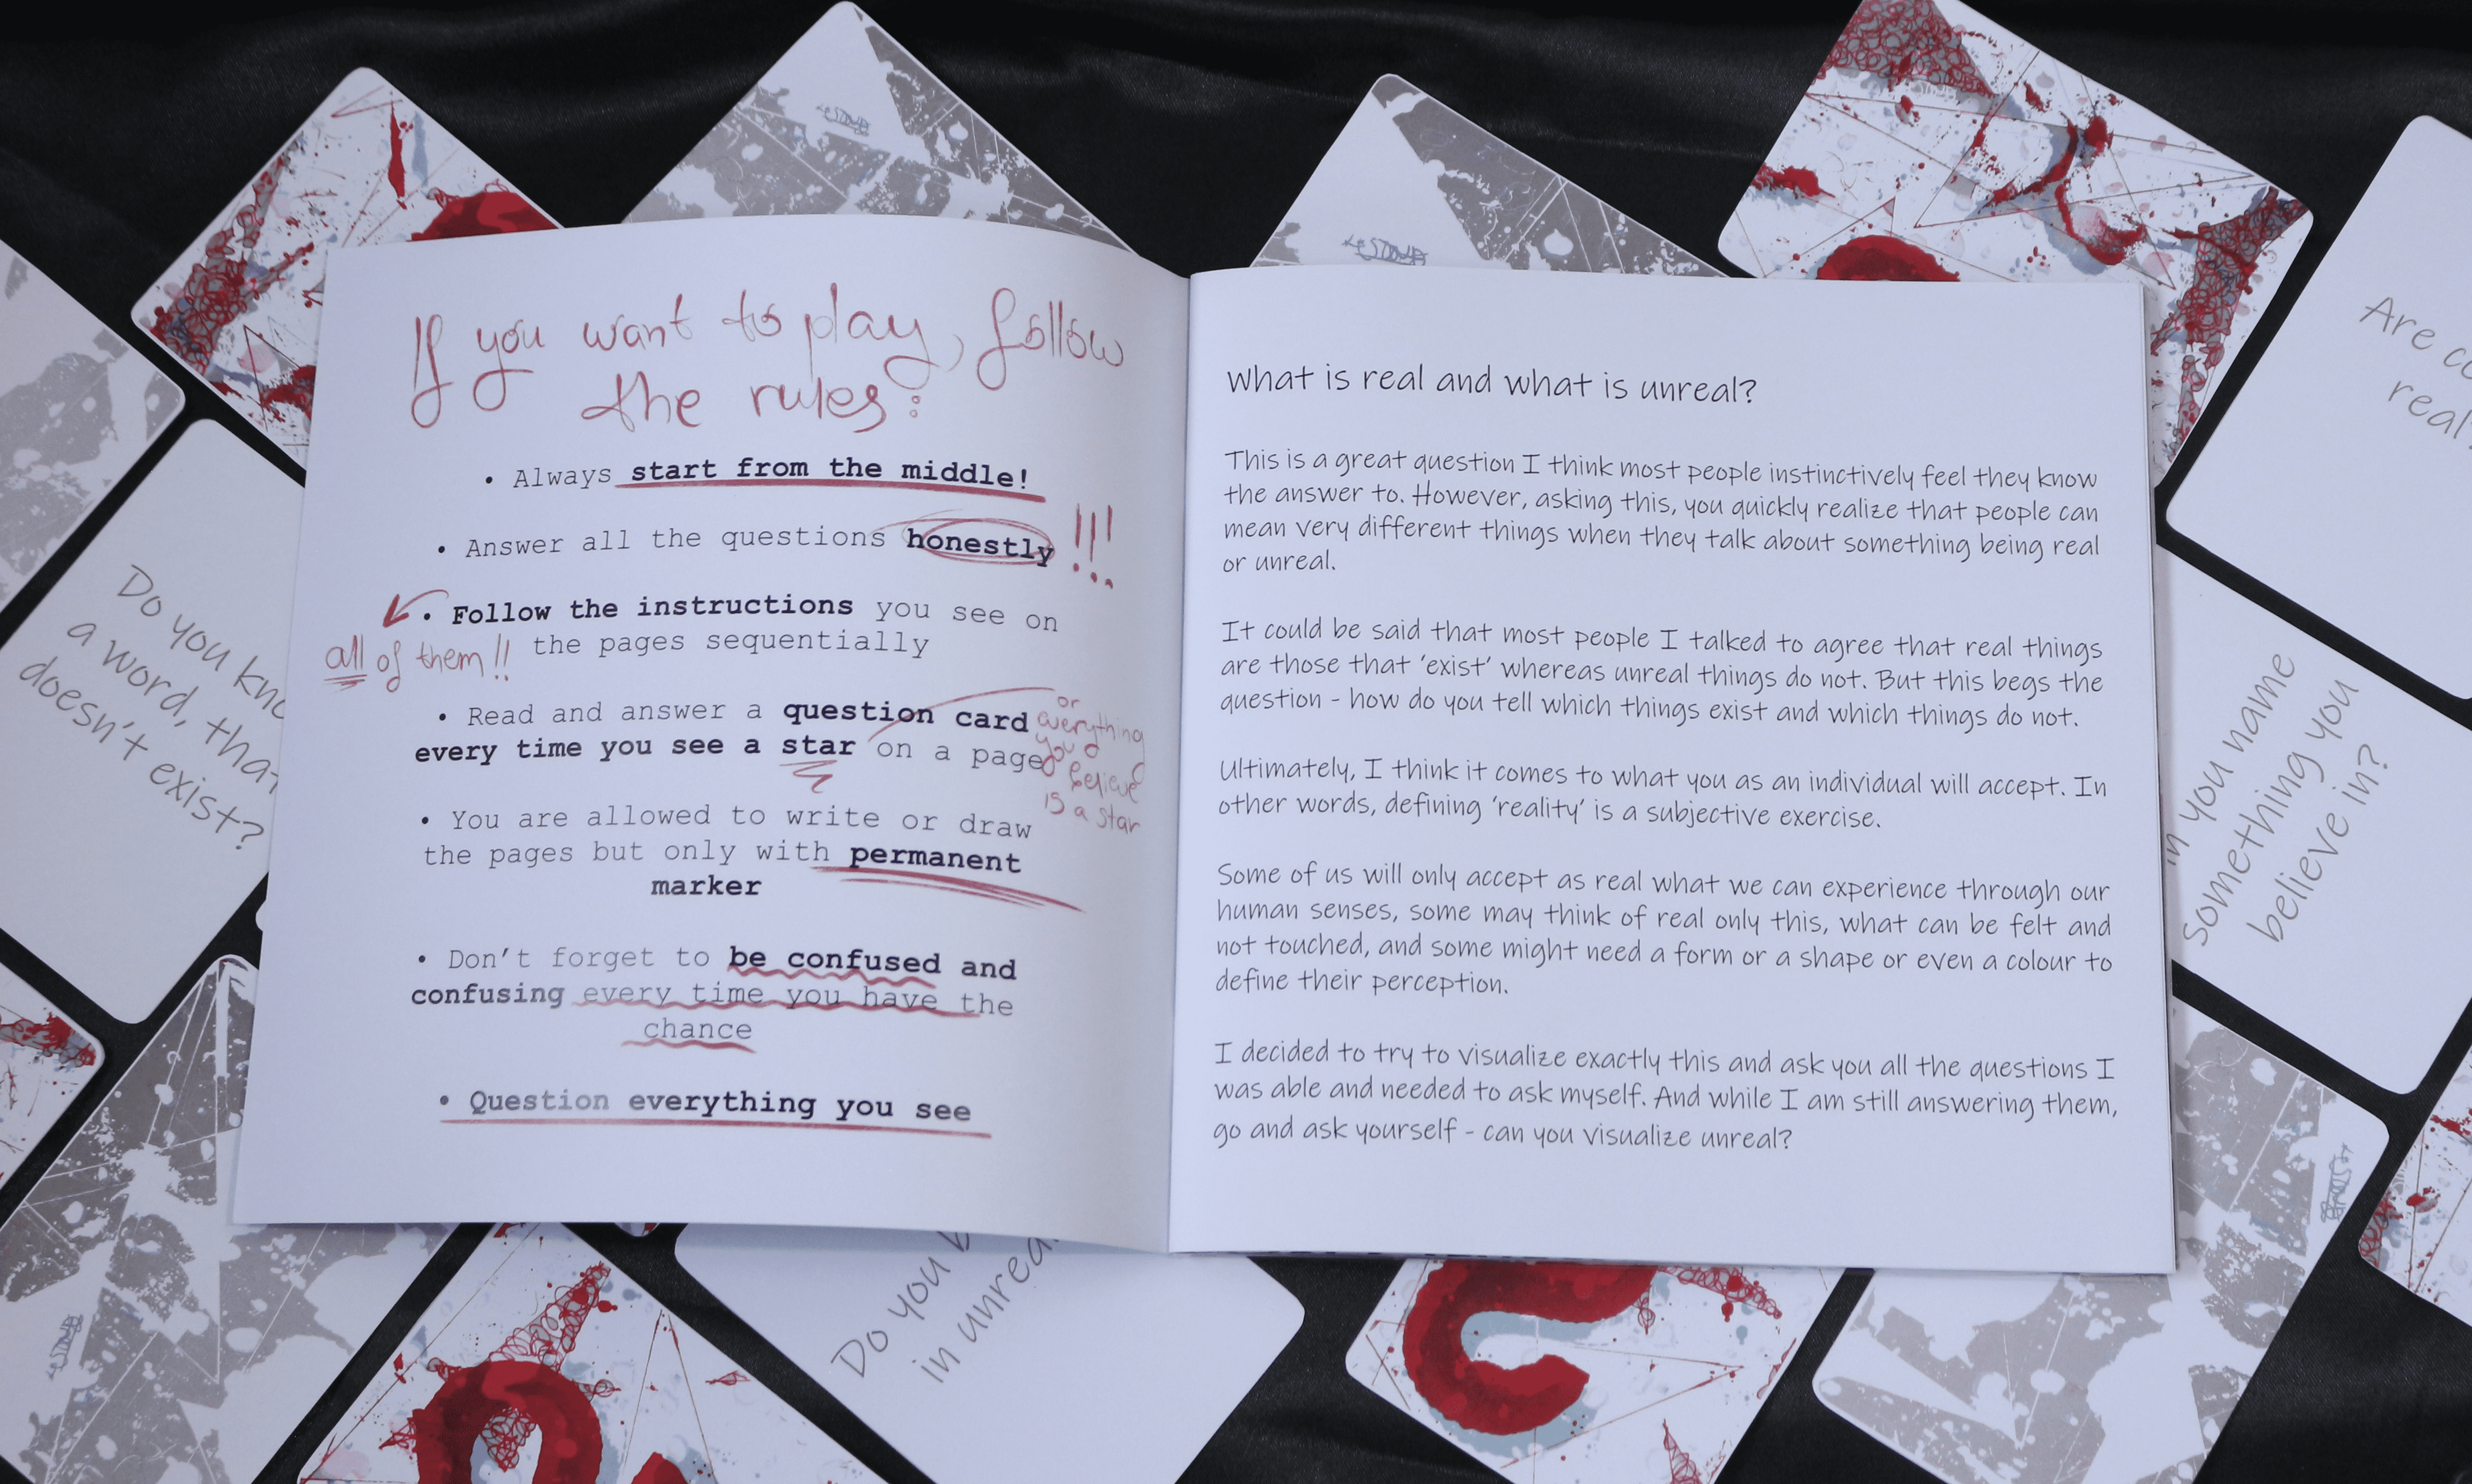 If you want to play, follow
the rules:
• Always start from the middle!
• Answer all the questions honestly !!!
• Follow the instructions you see on
the pages sequentially
all of them!!
• Read and answer a question card
every time you see a star on a page
or
everything
you
believe
is a star
• You are allowed to write or draw
the pages but only with permanent
marker
• Don't forget to be confused and
confusing every time you have the
chance
• Question everything you see
What is real and what is unreal?
This is a great question I think most people instinctively feel they know
the answer to. However, asking this, you quickly realize that people can
mean very different things when they talk about something being real
or unreal.
It could be said that most people I talked to agree that real things
are those that 'exist' whereas unreal things do not. But this begs the
question - how do you tell which things exist and which things do not.
Ultimately, I think it comes to what you as an individual will accept. In
other words, defining 'reality' is a subjective exercise.
Some of us will only accept as real what we can experience through our
human senses, some may think of real only this, what can be felt and
not touched, and some might need a form or a shape or even a colour to
define their perception.
I decided to try to visualize exactly this and ask you all the questions I
was able and needed to ask myself. And while I am still answering them,
go and ask yourself - can you visualize unreal?
Do you
a word,
doesn't exist?
Are
real
you name
something you
believe in?
Do you
in